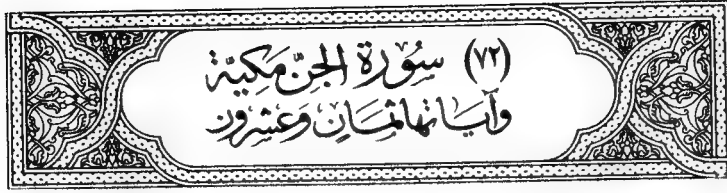 (٧٢) سُورَة الجِنّ مَكيَّة
وَآيَاتهَا ثمَانٍ وَعشِرُون